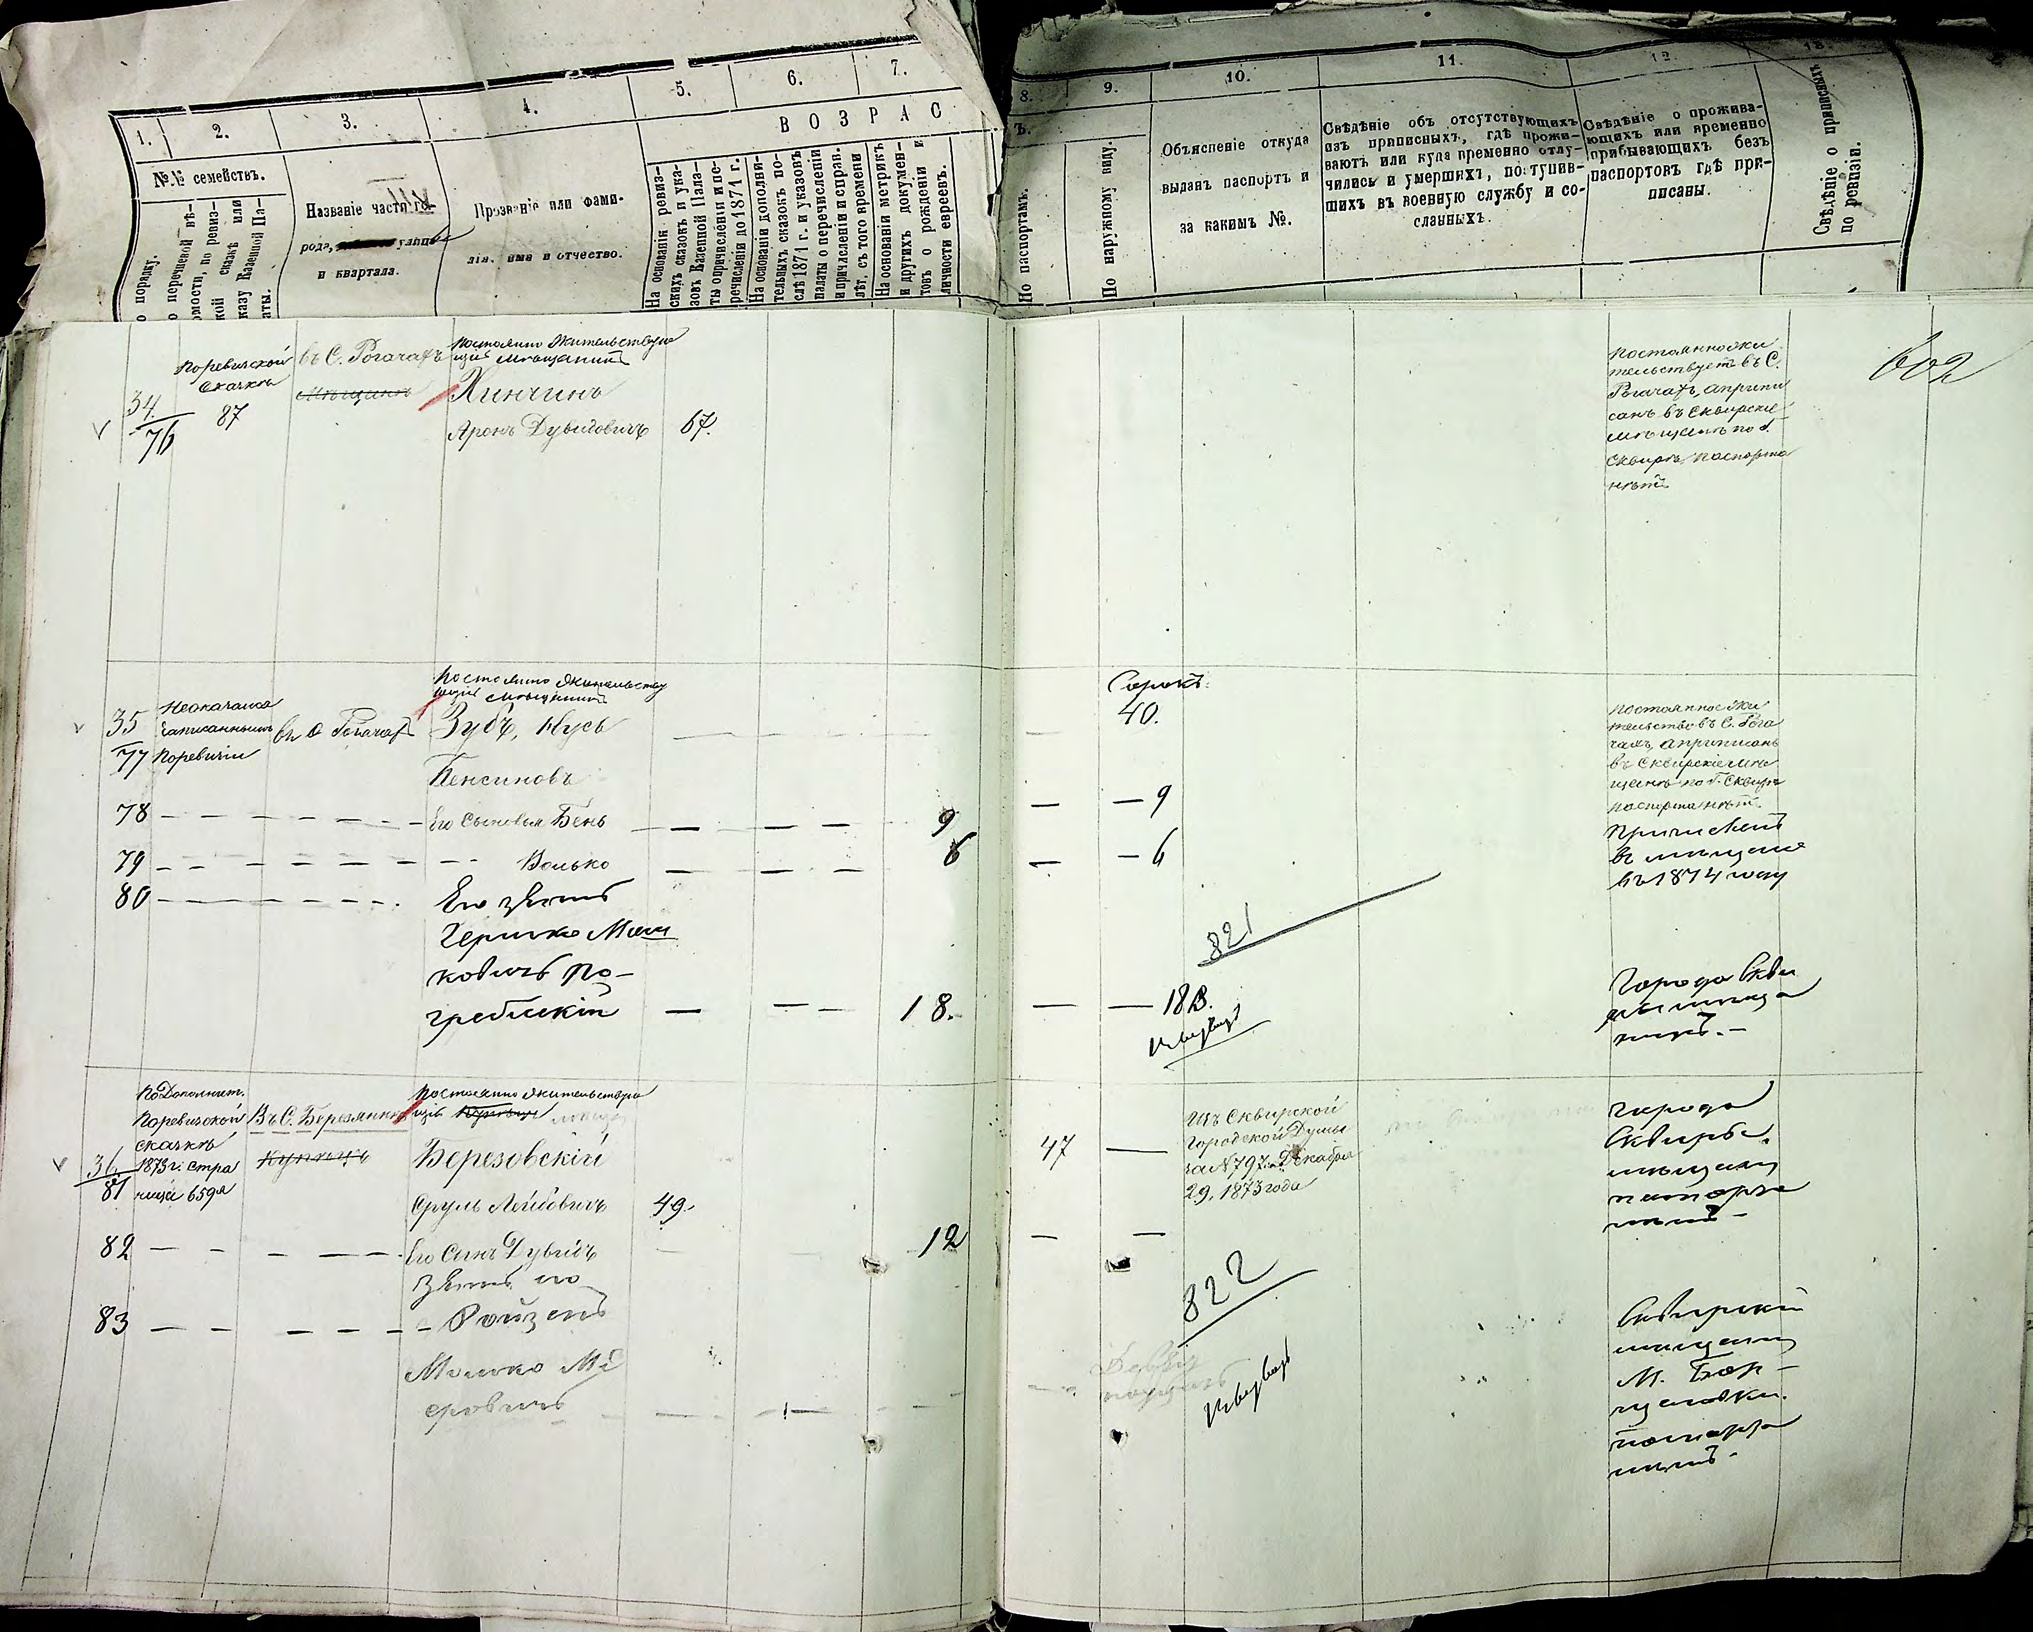 1.
2.
3.
4.
5.
6.
7.
8.
9.
10.
11.
12.
13.
ВОЗРАС
Ъ.
№№ семействъ.
о порядку.
о перечневой вѣ-
омости, по ревиз-
кой сказкѣ или
казу Казенной Па-
аты.
Названіе части го-
рода, улицы
и квартала.
Прозваніе или фами-
лія, имя и отчество.
На основаніи ревиз-
скихъ сказокъ и ука-
зовъ Казенной Пала-
ты о причисленіи и пе-
речисленіи до 1871 г.
На основаніи дополни-
тельныхъ сказокъ по-
слѣ 1871 г. и указовъ
палаты о перечисленіи
и причисленіи и справ.
лѣт, съ того времени
На основаніи метрикъ
и другихъ докумен-
товъ о рожденіи и
личности евреевъ.
По паспортамъ.
По наружному виду.
Объясненіе откуда
выданъ паспортъ и
за какимъ №.
Свѣдѣніе объ отсутствующихъ
изъ приписныхъ, гдѣ прожи-
ваютъ или куда временно отлу-
чились и умершихъ, поступив-
шихъ въ военную службу и со-
сланныхъ.
Свѣдѣніе о прожива-
ющихъ или временно
прибывающихъ безъ
паспортовъ гдѣ при-
писаны.
Свѣдѣніе о приписныхъ
по ревизіи.
602
34
76
Поревизской
Сказкѣ
87
въ С. Рогачахъ
Мѣщанинъ
Постоянно Жительствую
щій Мѣщанинъ
Хинчинъ
Аронъ Дувидовичъ
67.
Постоянно жи
тельствуетъ въ С.
Рогачахъ, а припи
санъ въ Сквирскіе
мѣщане по г.
Сквирѣ, паспорта
нѣтъ
35
77
Неоказался
записаннымъ
Поревизіи
въ С Рогачахъ
Постоянно Жительству
ющій Мѣщанинъ
Зубъ, Нусь
Бенсіновъ
Сорокъ
40.
Постоянное жи
тельство въ С. Рога
чахъ, а приписанъ
въ Сквирскіе мѣ
щане по г. Сквирѣ
паспорта нѣтъ.
Причисленъ
въ мѣщане
въ 1874 году
78
Его Сыновья Бень
9
— 9
79
Волько
6
— 6
80
Его зять
Гершко Мош
ковичъ По-
гребискій
18.
18
821
Города Скви
ры мѣща
нинъ. -
36
81
По Дополнит.
Поревизской
Сказкѣ
1873 г. стра
ница 659я
Въ С. Березянки
Купецъ
Постоянно Жительствую
щій
Березовскій
Сруль Лейбовичъ
49.
47
Изъ Сквирской
Городской Думы
за № 797 Декабря
29, 1873 года
города
Сквиры
мѣщанин
паспорта
нѣтъ -
82
Его Сынъ Дувидъ
12
822
83
Зять по
Ройзенъ
Мошко Ме
еровичъ
Сквирскій
мѣщанин
М. Бор-
щаговки.
паспорта
нѣтъ. -